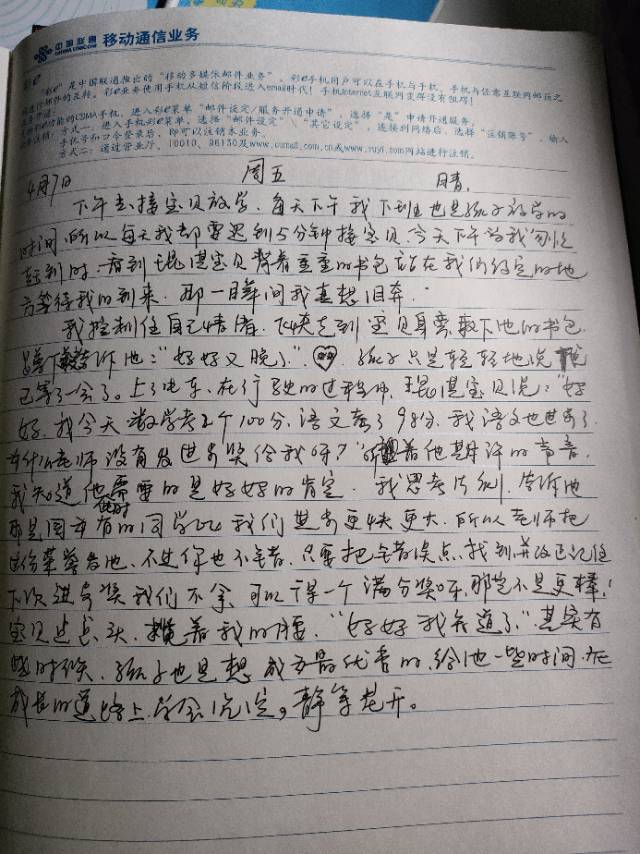 中国联通 CHINA UNICOM 移动通信业务
彩e
"彩e"是中国联通推出的"移动多媒体邮件业务"。彩e手机用户可以在手机与手机、手机与任意互联网邮箱之
间进行邮件的互转。彩e业务使用手机从短信阶段进入email时代！手机Internet互联网变得没有阻碍！
功能的CDMA手机，进入彩e菜单"邮件设定/服务开通申请"，选择"是"申请开通服务。
方式一、进入手机彩e菜单，选择"邮件设定"\"其它设定"，连接到网络后，选择"注销账号"，输入
手机号和口令登录后，即可以注销本业务。
方式二：通过营业厅、10010、96130及www.cumail.com.cn或www.ruyi.com网站进行注销。
4月7日 周五 晴.
下午去接宝贝放学。每天下午我下班也是孩子放学的
时间，所以每天我都要迟到5分钟接宝贝。今天下午当我匆忙
赶到时，看到琨淇宝贝背着重重的书包站在我们约定的地
方等待我的到来。那一瞬间我真想泪奔.
我控制住自己情绪，飞快走到宝贝身旁取下他的书包.
告诉他："好好又晚了"。孩子只是轻轻地说
已等了一会了。上了电车，在行驶的过程中，琨淇宝贝说："好
好，我今天数学考2个100分，语文考了98分，我语文也进步了.
为什么老师没有发进步奖给我呀？"听着他期许的声音，
我知道他需要的是好好的肯定。我思考片刻，告诉他
那是因为有的同学比我们进步更快更大，所以老师把
这份荣誉发他。不过你也不差，只要把错误点找到并改正记住
下次进步奖我们不拿，可以拿一个满分奖呀，那岂不是更棒！
宝贝点点头，搂着我的腰，"好好我知道了"。其实有
些时候，孩子也是想成为最优秀的，给他一些时间，在
成长的道路上学会沉淀，静等花开。